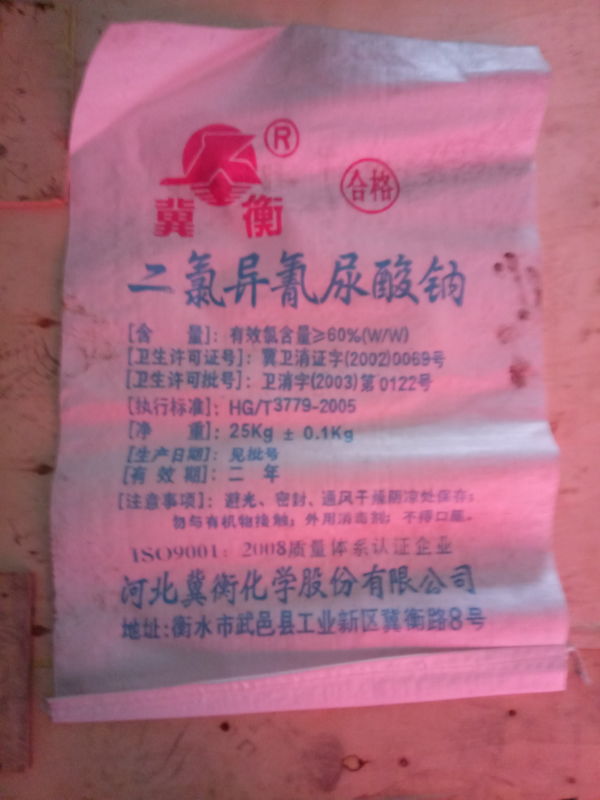 ®
合格
冀衡
二氯异氰尿酸钠
[含 量]：有效氯含量≥60%(W/W)
[卫生许可证号]：冀卫消证字(2002)0069号
[卫生许可批号]：卫消字(2003)第0122号
[执行标准]：HG/T3779-2005
[净 重]：25Kg ± 0.1Kg
[生产日期]：见批号
[有 效 期]：二 年
[注意事项]：避光、密封、通风干燥阴凉处保存；
勿与有机物接触；外用消毒剂；不得口服。
ISO9001：2008质量体系认证企业
河北冀衡化学股份有限公司
地址:衡水市武邑县工业新区冀衡路8号